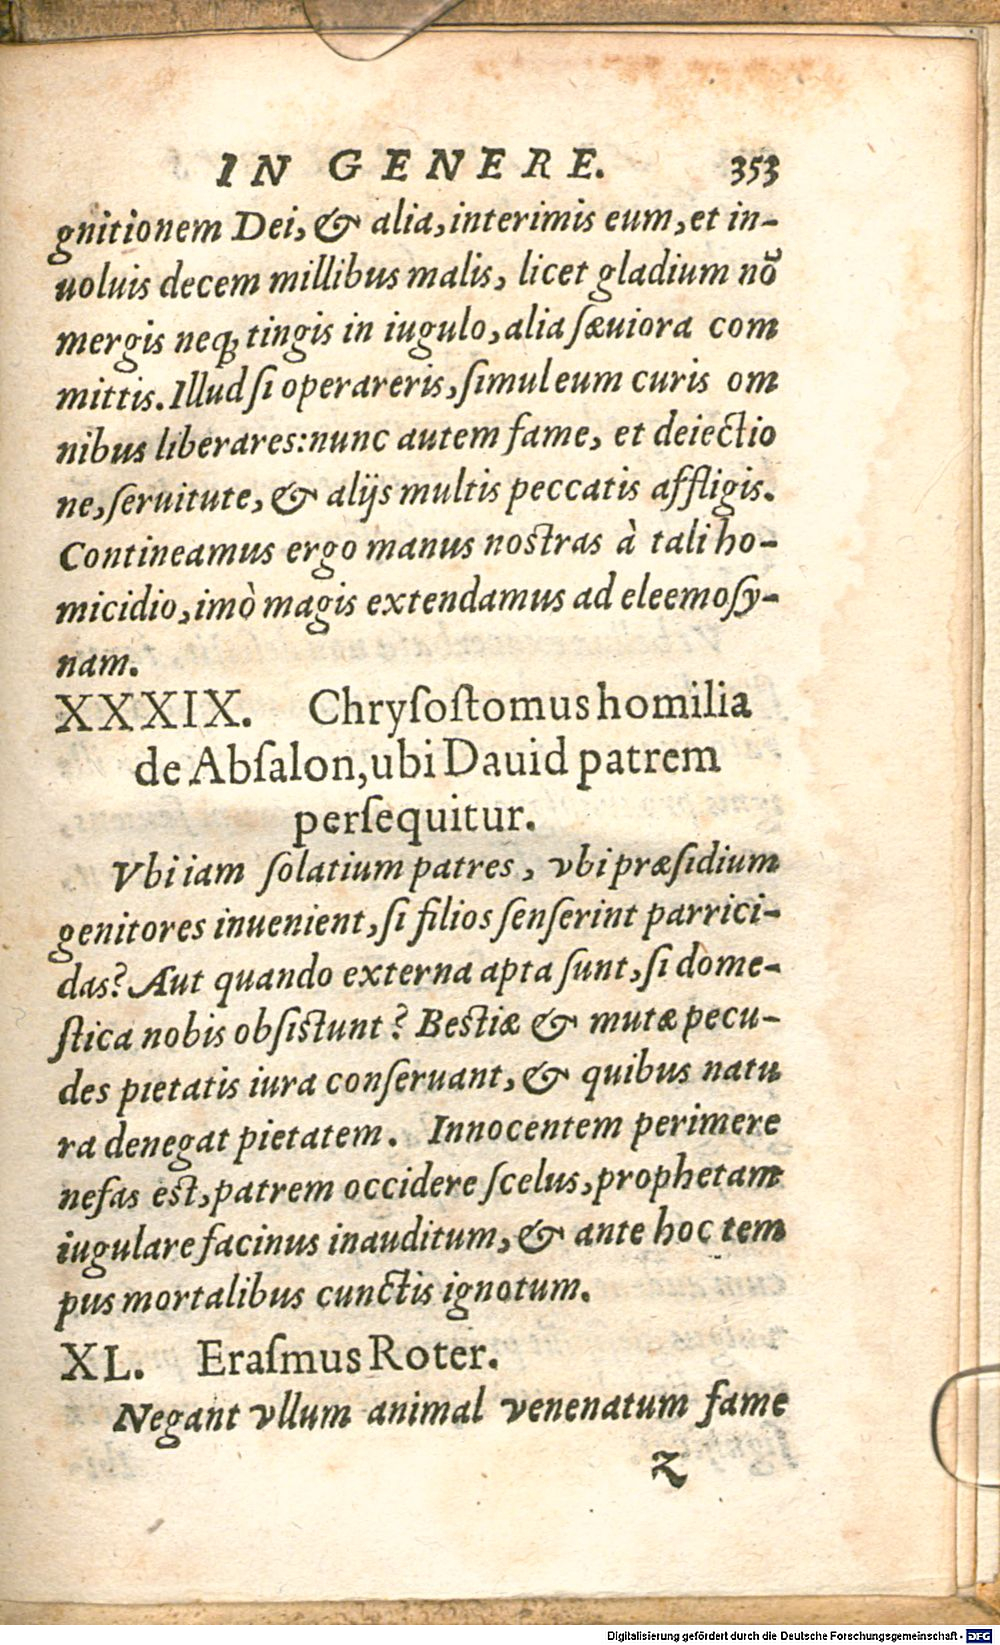 IN GENERE. 353
gnitionem Dei, & alia, interimis eum, et in-
uoluis decem millibus malis, licet gladium nō
mergis neq; tingis in iugulo, alia sæuiora com
mittis. Illud si operareris, simul eum curis om
nibus liberares: nunc autem fame, et deiectio
ne, seruitute, & alijs multis peccatis affligis.
Contineamus ergo manus nostras à tali ho-
micidio, imò magis extendamus ad eleemosy-
nam.
XXXIX. Chrysostomus homilia
de Absalon, ubi Dauid patrem
persequitur.
Vbi iam solatium patres, vbi præsidium
genitores inuenient, si filios senserint parrici-
das? Aut quando externa apta sunt, si dome-
stica nobis obsistunt? Bestiæ & mutæ pecu-
des pietatis iura conseruant, & quibus natu
ra denegat pietatem. Innocentem perimere
nefas est, patrem occidere scelus, prophetam
iugulare facinus inauditum, & ante hoc tem
pus mortalibus cunctis ignotum.
XL. Erasmus Roter.
Negant vllum animal venenatum fame
Z
Digitalisierung gefördert durch die Deutsche Forschungsgemeinschaft - DFG